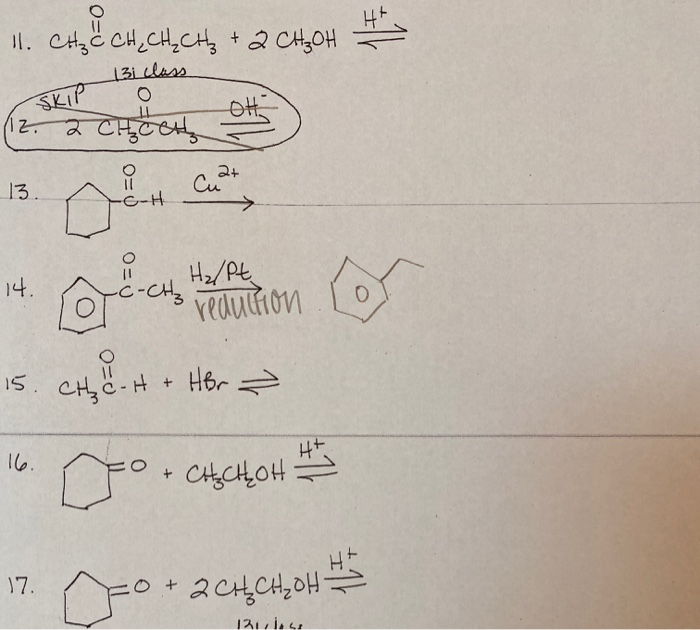 11. CH₃CCH₂CH₂CH₃ + 2 CH₃OH ⇌ H⁺
O
131 class
SKIP
O
12. 2 CH₃CCH₃ ⇌ OH⁻
13. O
C-H Cu²⁺ →
14. O
C-CH₃ H₂/Pt →
reduction
O
15. CH₃C-H + HBr ⇌
O
16. =O + CH₃CH₂OH ⇌ H⁺
17. =O + 2 CH₃CH₂OH ⇌ H⁺
131 class